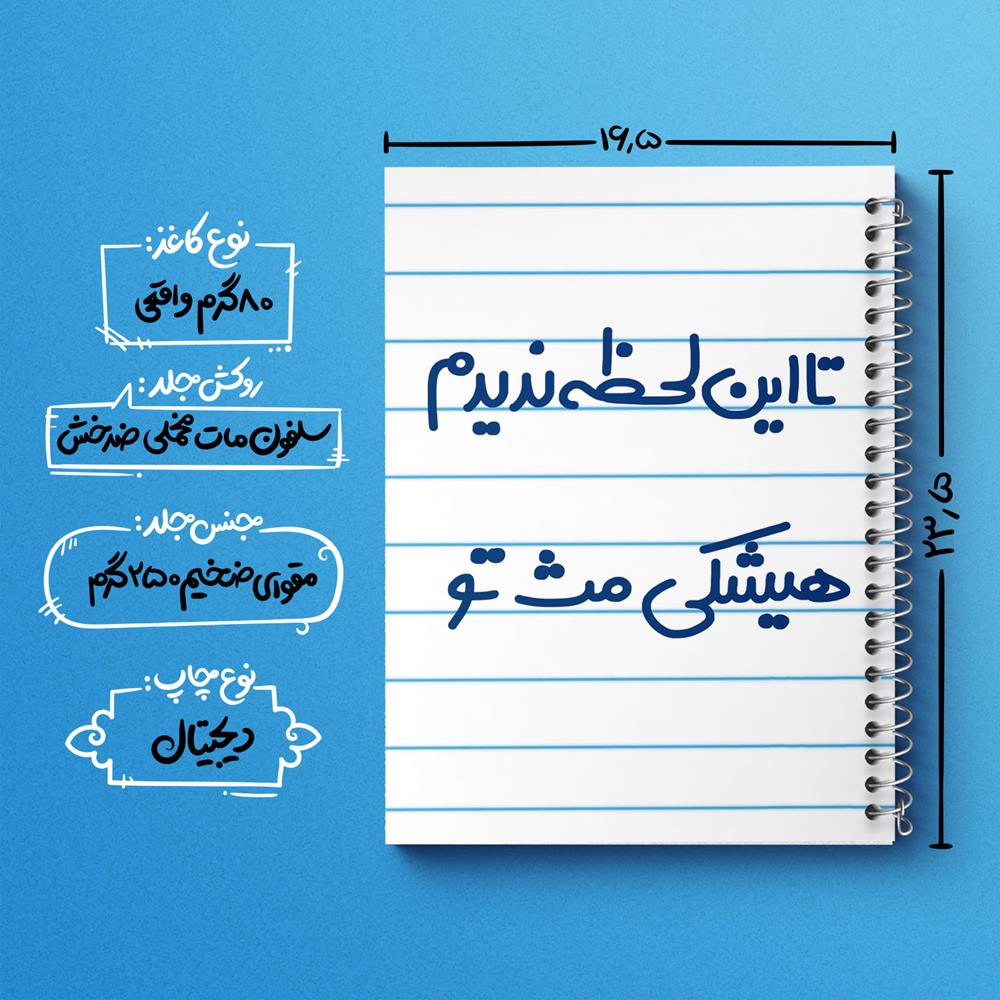 ۱۶٫۵
۲۳٫۵
تا این لحظه ندیدم
هیشکی مث تو
نوع کاغذ:
۸۰ گرم واقعی
روکش جلد:
سلفون مات مخملی ضدخش
جنس جلد:
مقوای ضخیم ۲۵۰ گرم
نوع چاپ:
دیجیتال